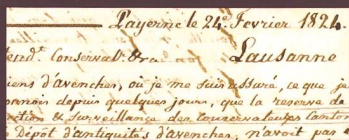 Payerne le 24e. Fevrier 1824.
tend.t Conservat.r &ra Lausanne
iens d'avenches, où je me suis assuré, ce que je
onnois depuis quelques jours, que la reserve de
ction & Surveillance des Conservateurs Canton
Dépôt d'antiquités d'avenches, n'avoit pas